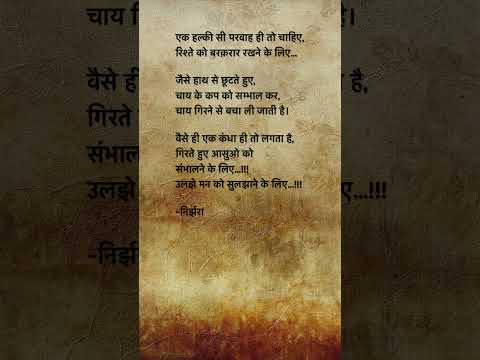 एक हल्की सी परवाह ही तो चाहिए,
रिश्ते को बरक़रार रखने के लिए...
जैसे हाथ से छूटते हुए,
चाय के कप को सम्भाल कर,
चाय गिरने से बचा ली जाती है।
वैसे ही एक कंधा ही तो लगता है,
गिरते हुए आसुओ को
संभालने के लिए...!!!
उलझे मन को सुलझाने के लिए...!!!
-निर्झरा